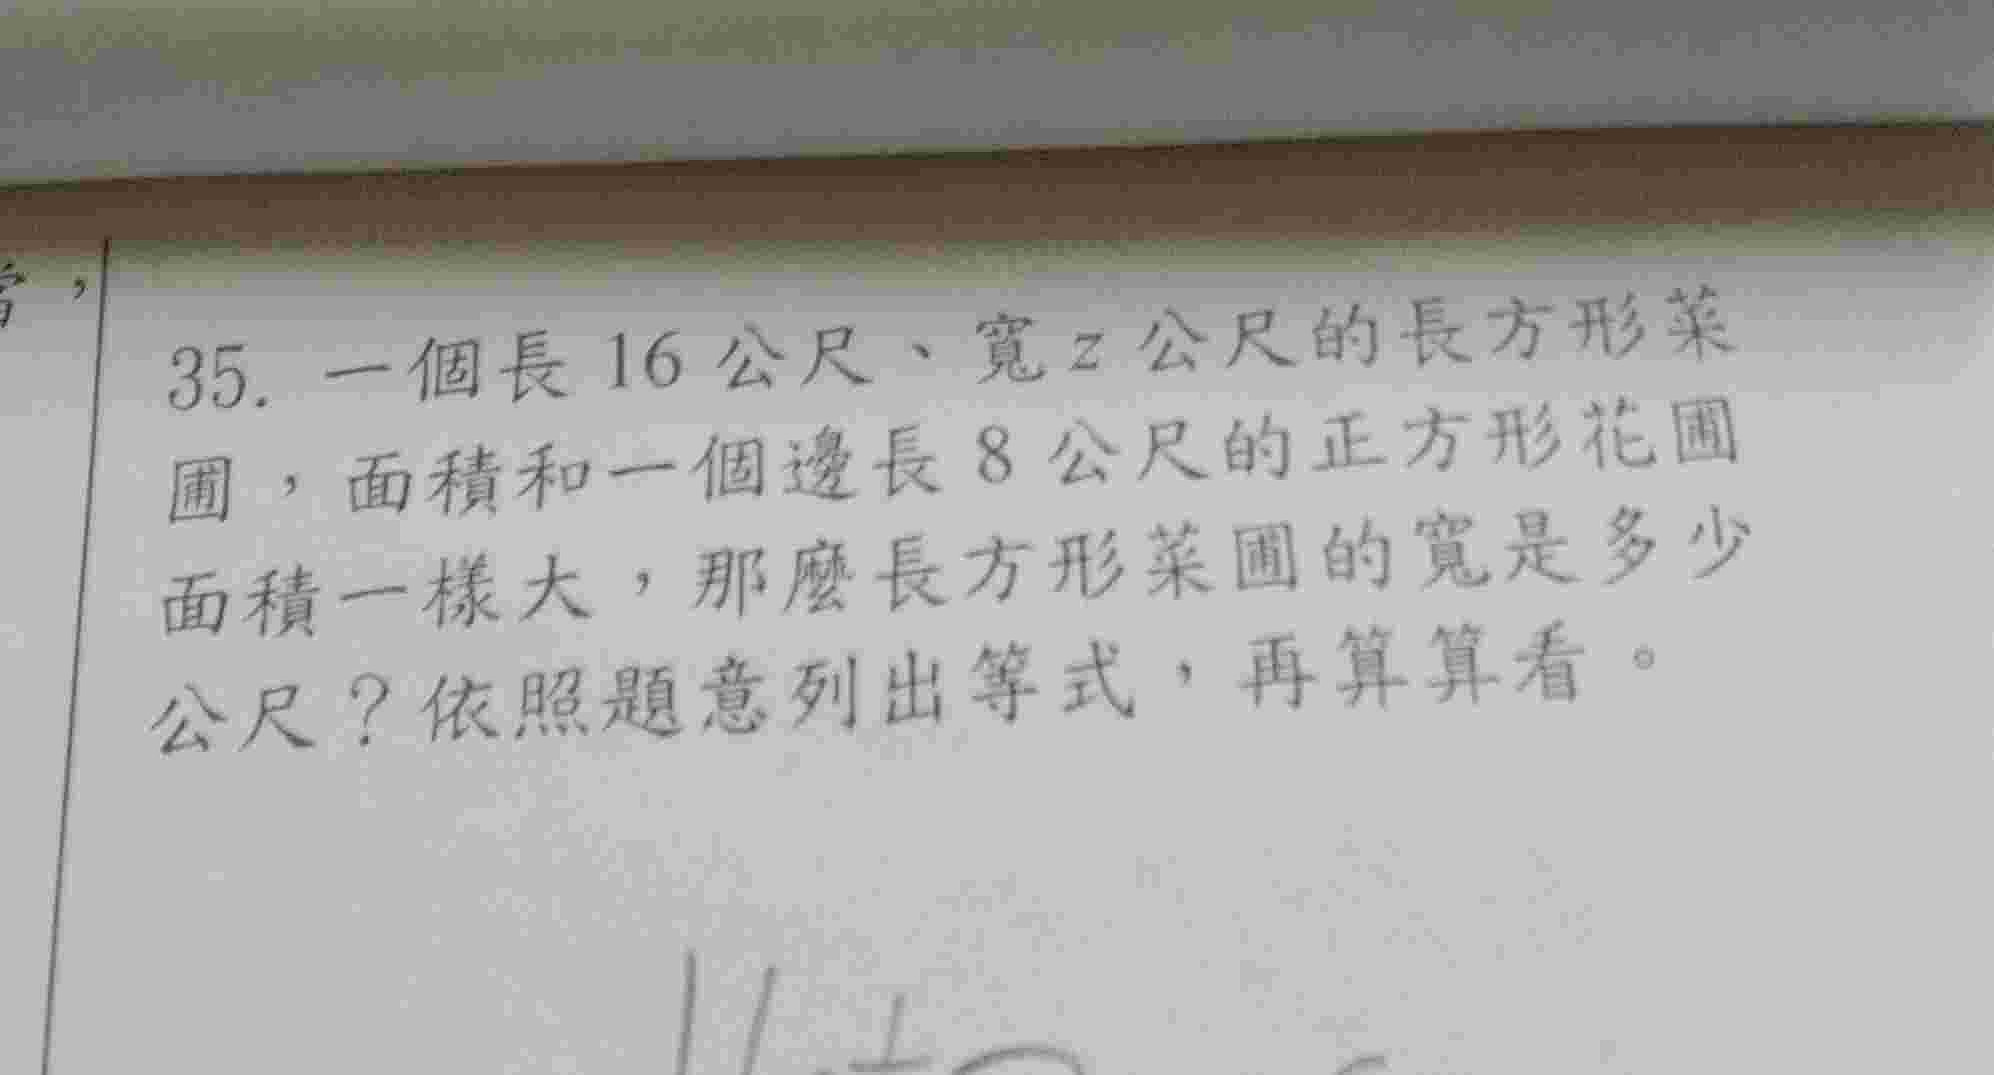 35. 一個長 16 公尺、寬 z 公尺的長方形菜
圃，面積和一個邊長 8 公尺的正方形花圃
面積一樣大，那麼長方形菜圃的寬是多少
公尺？依照題意列出等式，再算算看。